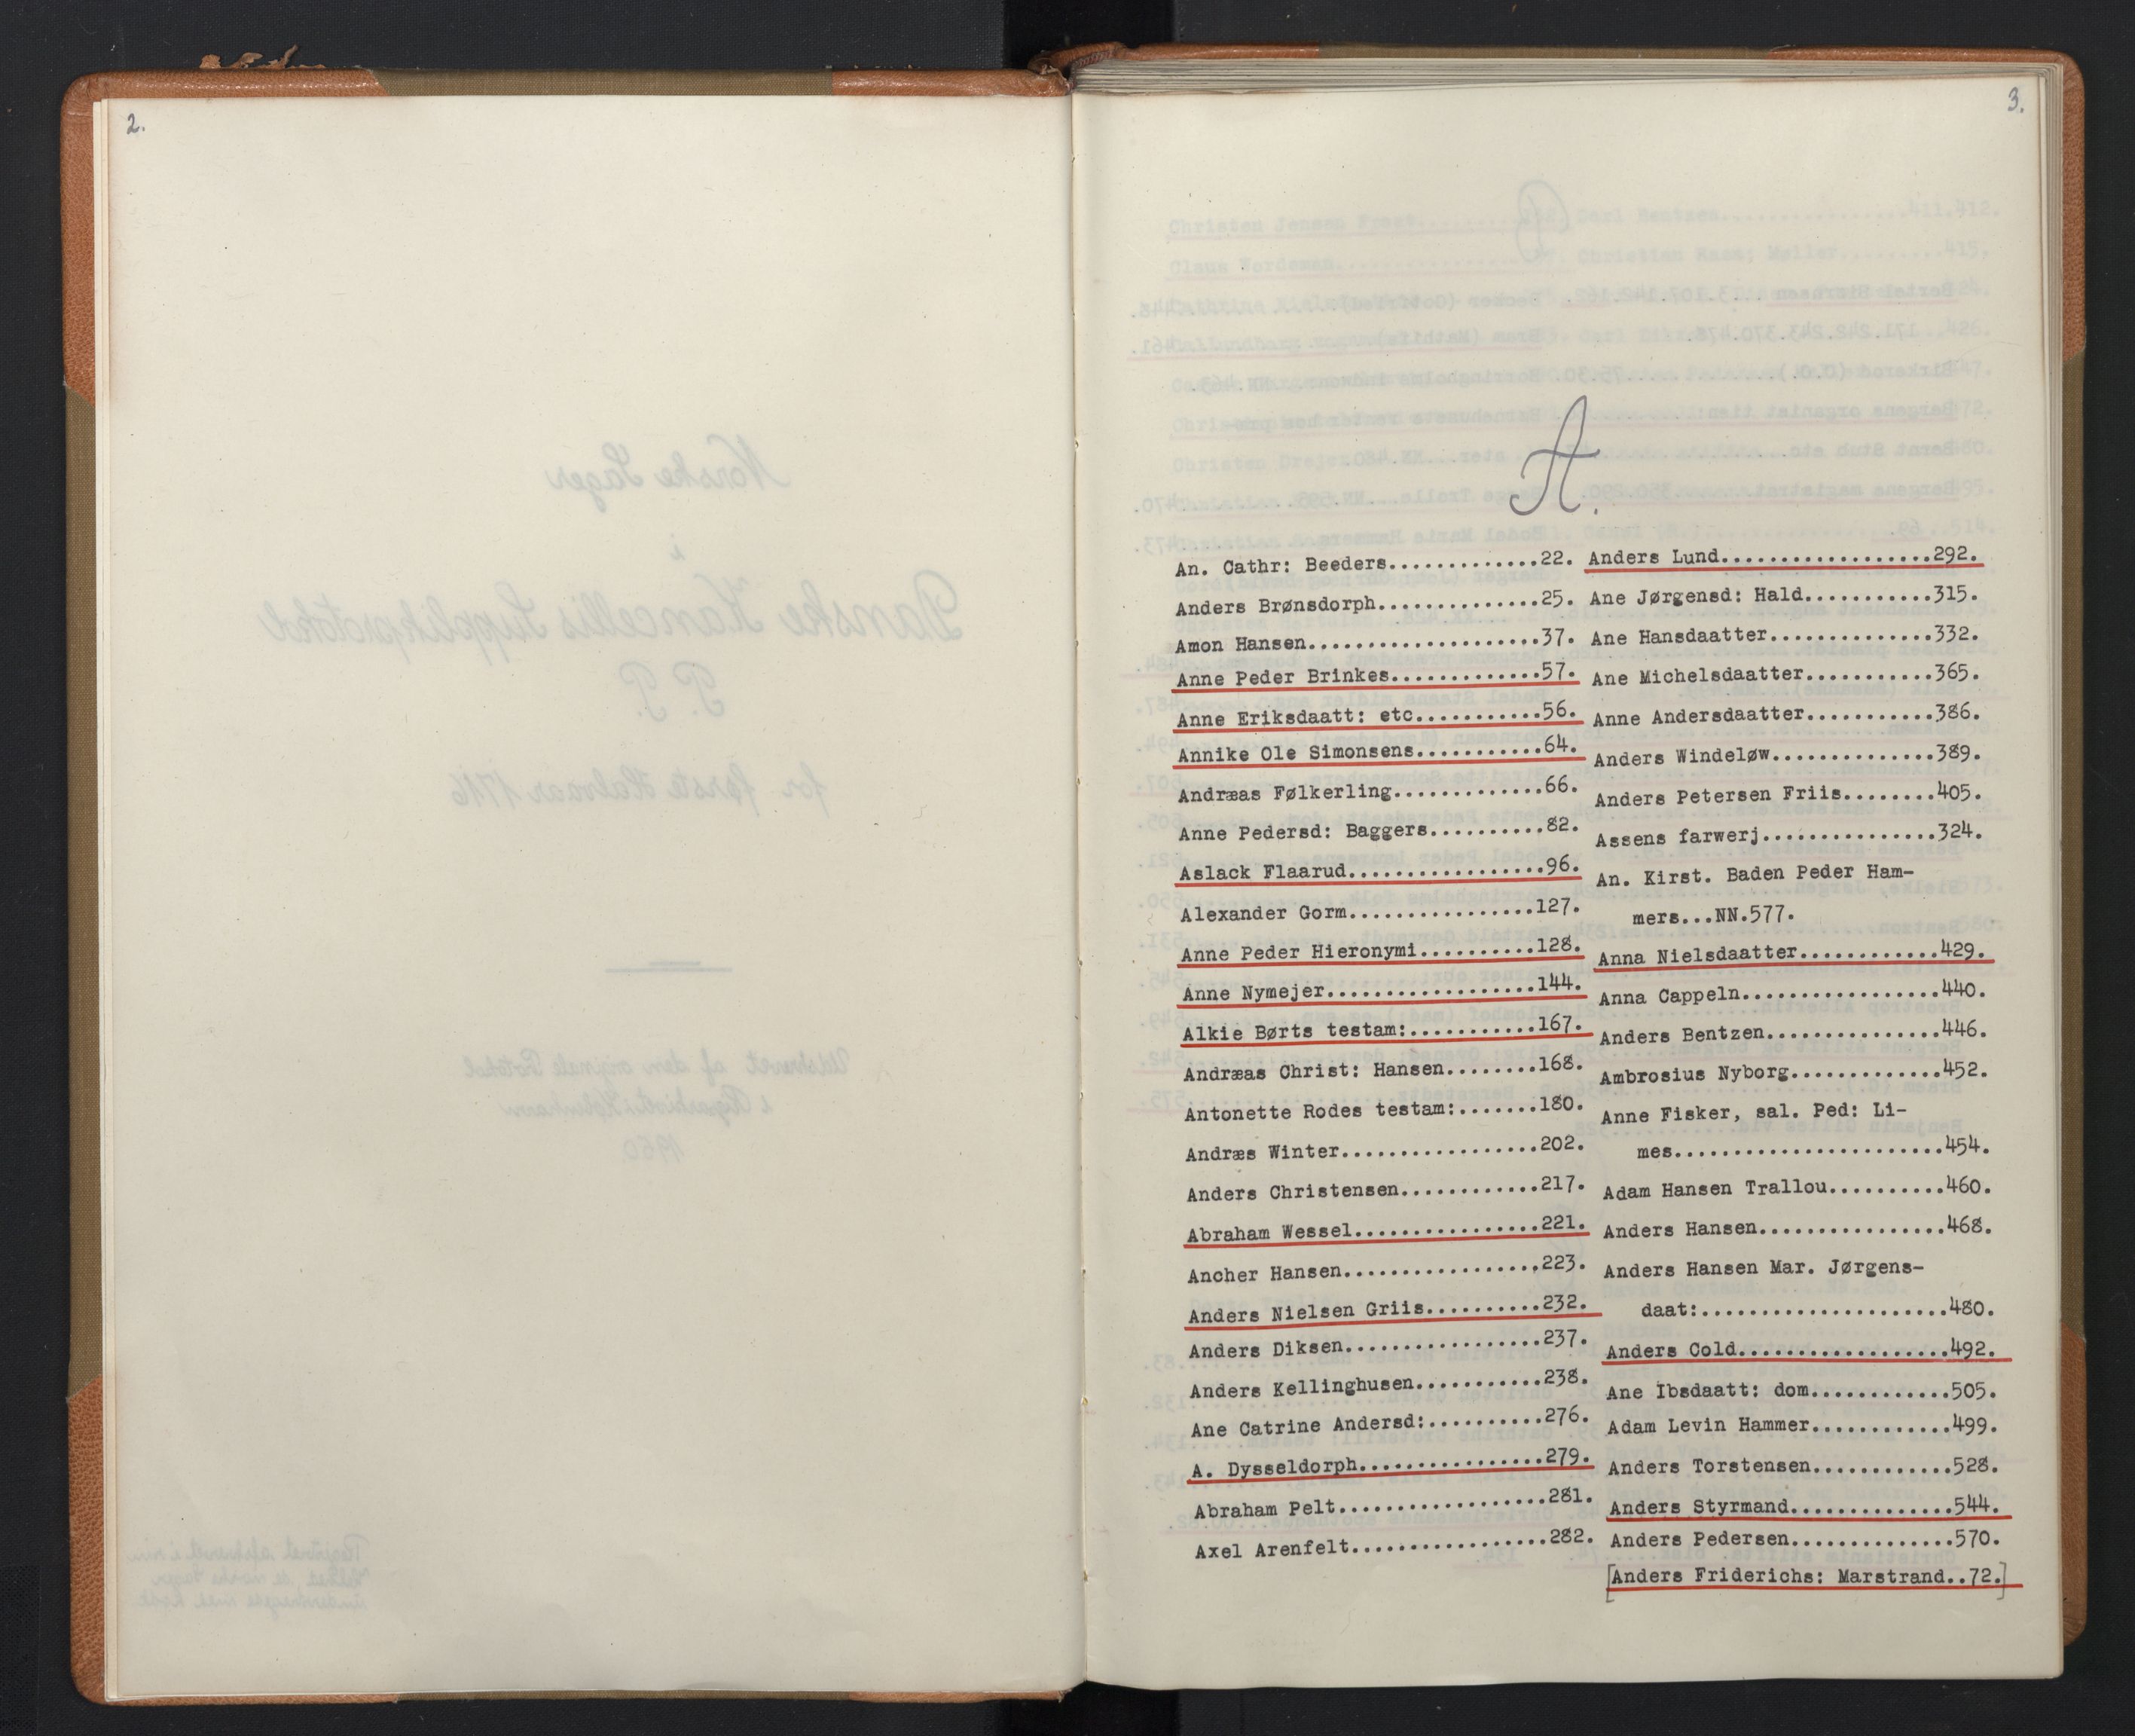 2.
3.
A.
An. Cathr: Beeders.............22.
Anders Brønsdorph..............25.
Amon Hansen....................37.
Anne Peder Brinkes.............57.
Anne Eriksdaatt: etc...........56.
Annike Ole Simonsens...........64.
Andræas Følkerling.............66.
Anne Pedersd: Baggers..........82.
Aslack Flaarud.................96.
Alexander Gorm................127.
Anne Peder Hieronymi..........128.
Anne Nymejer..................144.
Alkie Børts testam:...........167.
Andræas Christ: Hansen........168.
Antonette Rodes testam:.......180.
Andræs Winter.................202.
Anders Christensen............217.
Abraham Wessel................221.
Ancher Hansen.................223.
Anders Nielsen Griis..........232.
Anders Diksen.................237.
Anders Kellinghusen...........238.
Ane Catrine Andersd:..........276.
A. Dysseldorph................279.
Abraham Pelt..................281.
Axel Arenfelt.................282.
Anders Lund..................292.
Ane Jørgensd: Hald...........315.
Ane Hansdaatter..............332.
Ane Michelsdaatter...........365.
Anne Andersdaatter...........386.
Anders Windeløw..............389.
Anders Petersen Friis........405.
Assens farwerj...............324.
An. Kirst. Baden Peder Ham-
mers...NN.577.
Anna Nielsdaatter............429.
Anna Cappeln.................440.
Anders Bentzen...............446.
Ambrosius Nyborg.............452.
Anne Fisker, sal. Ped: Li-
mes.......................454.
Adam Hansen Trallou..........460.
Anders Hansen................468.
Anders Hansen Mar. Jørgens-
daat:.....................480.
Anders Cold..................492.
Ane Ibsdaatt: dom............505.
Adam Levin Hammer............499.
Anders Torstensen............528.
Anders Styrmand..............544.
Anders Pedersen..............570.
[Anders Friderichs: Marstrand..72.]